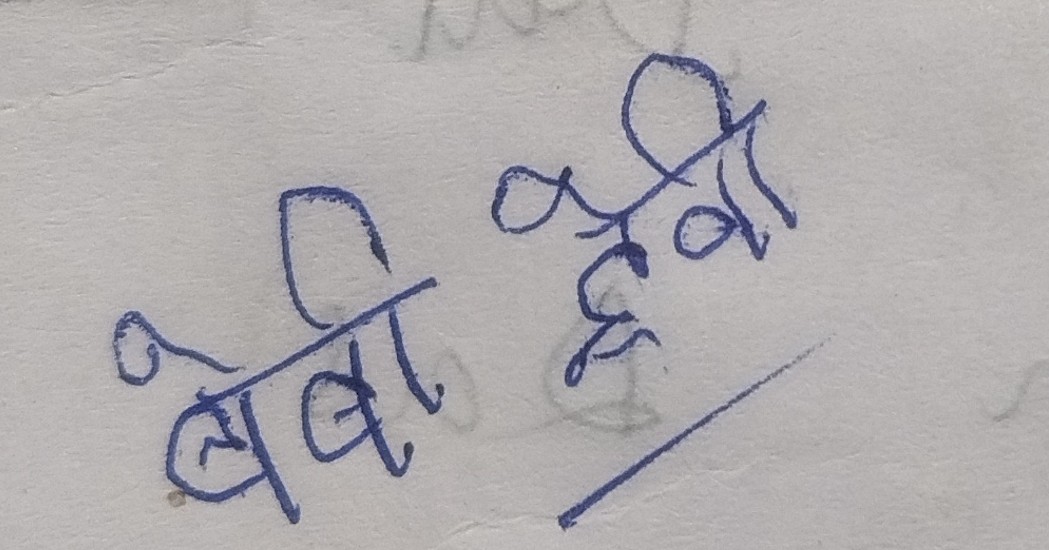 बेबी देवी